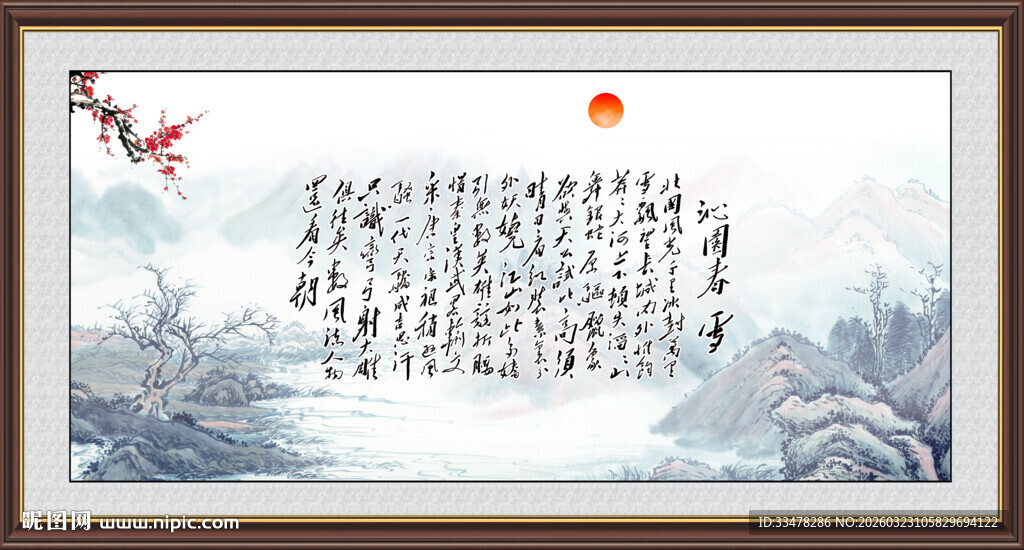 沁園春 雪
北國風光千里冰封萬里
雪飄望長城内外惟餘
莽〻大河上下頓失滔〻山
舞銀蛇原驅臘象
欲與天公試比高須
晴日看紅裝素裹分
外妖嬈江山如此多嬌
引無數英雄競折腰
惜秦皇漢武略輸文
采唐宗宋祖稍遜風
騷一代天驕成吉思汗
只識彎弓射大雕
俱往矣數風流人物
還看今朝
昵图网 www.nipic.com
ID:33478286 NO:20260323105829694122